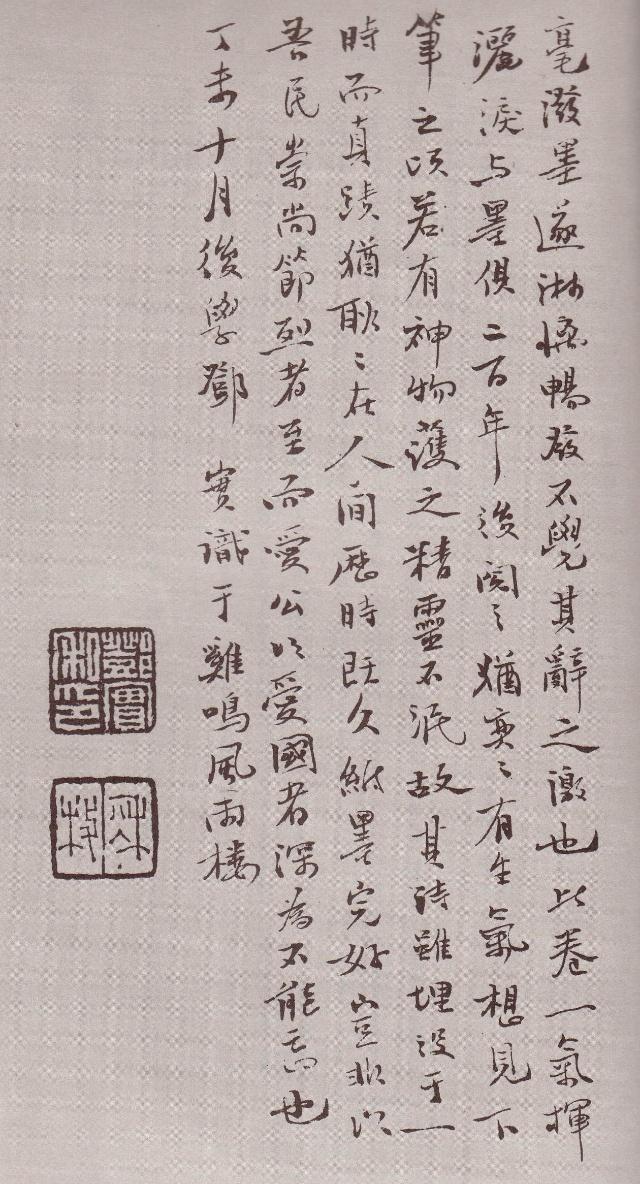 毫潑墨遂淋慟暢發不覺其辭之激也此卷一氣揮
灑淚与墨俱二百年後閱之猶奕〻有生氣想見下
筆之頃若有神物護之精靈不泯故其詩雖埋沒于一
時而真蹟猶耿〻在人間歷時既久紙墨完好豈非以
吾民崇尚節烈者至而愛公以愛國者深為不能忘也
丁未十月後學鄧實識于雞鳴風雨樓
鄧實私印
秋枚